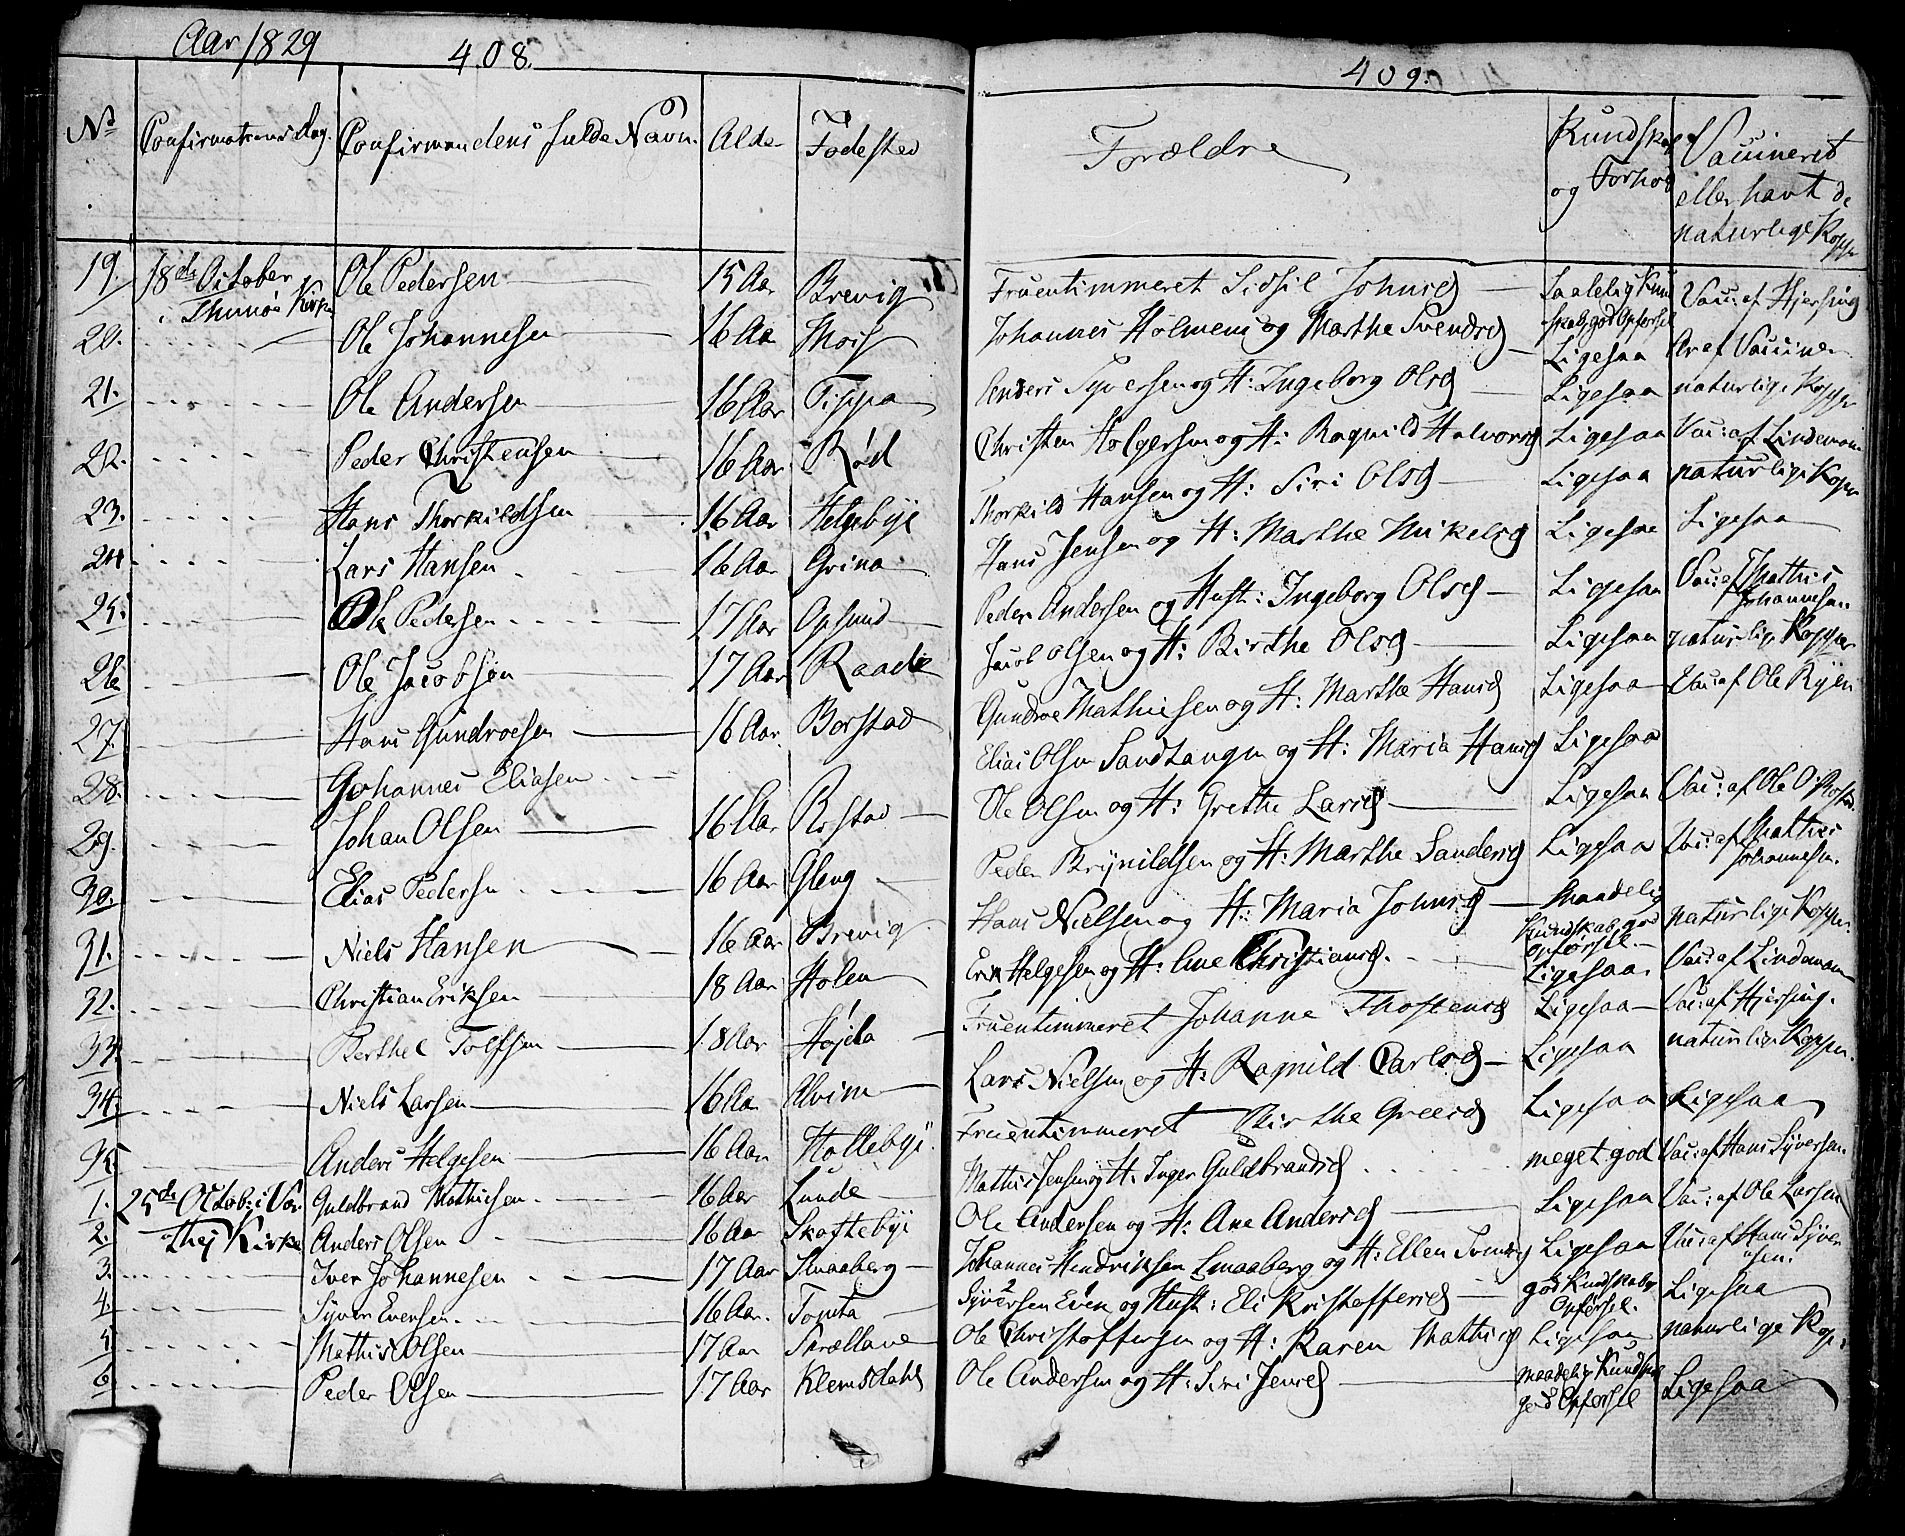 Aar 1829
408.
409.
No Confirmations Dag. Confirmandens fulde Navn. Alder Fødested Forældre Kundskab og Forhold Vaccineret eller havt de naturlige Kopper
19. 18de October i Thunøe Kirke Ole Pedersen 15 Aar Brevig Fruentimmeret Sidsil Johnsd Saalelig Kundskab, god Opførsel Vacc: af Hjersing
20. Ole Johannesen 16 Aar Mois Johannes Holmen og Marthe Svendsd Ligesaa Ar af Vaccine
21. Ole Andersen 16 Aar Tippa Anders Syversen og H: Ingeborg Olsd Ligesaa naturlige Kopper
22. Peder Christensen 16 Aar Rød Christen Holgersen og H: Ragnild Halvorsd Ligesaa Vacc: af Lindeman
23. Hans Thorkildsen 16 Aar Helgebye Thorkild Hansen og H: Siri Olsd Ligesaa naturlige Kopper
24. Lars Hansen 16 Aar Grina Hans Jensen og H: Marthe Mikelsd Ligesaa Ligesaa
25. Ole Pedersen 17 Aar Opsund Peder Andersen og Hust: Ingeborg Olsd Ligesaa Vacc: af Mathis Johannesen
26. Ole Jacobsen 17 Aar Raade Jacob Olsen og H: Birthe Olsd Ligesaa naturlige Kopper
27. Hans Gundroesen 16 Aar Borstad Gundroe Mathiesen og H: Marthe Hansd Ligesaa Vacc: af Ole Ryen
28. Johannes Eliasen Elias Olsen Sandtangen og H: Maria Hansd Ligesaa
29. Johan Olsen 16 Aar Rostad Ole Olsen og H: Grethe Larsd Ligesaa Vacc: af Ole O. Rostad
30. Elias Pedersen 16 Aar Gleng Peder Brynildsen og H: Marthe Sandersd Ligesaa Vacc: af Mathis Johannesen.
31. Niels Hansen 16 Aar Brevig Hans Nielsen og H: Maria Johnsd Maadelig Kundskab, god Opførsel. naturlige Kopper.
32. Christian Eriksen 18 Aar Holen Erik Helgesen og H: Ane Christiansd. Ligesaa. Vacc: af Lindeman
33. Berthel Tolfsen 18 Aar Højda Fruentimmeret Johanne Thostensd Ligesaa Vacc: af Hjersing.
34. Niels Larsen 16 Aar Alvim Lars Nielsen og H: Ragnild Carlsd Ligesaa naturlige Kopper.
35. Anders Helgesen 16 Aar Hollebye. Fruentimmeret Birthe Greersd Ligesaa Ligesaa
1. 25de Octob: i Var Guldbrand Mathiesen 16 Aar Lunde Mathis Jensen og H. Inger Guldbrandsd meget god Vacc: af Hans Syversen.
2. thej Kirke Anders Olsen 16 Aar Skoftebye Ole Andersen og H: Ane Andersd Ligesaa Vacc: af Ole Larsen
3. Iver Johannesen 17 Aar Smaaberg Johannes Hendriksen Smaaberg og H: Ellen Svendsd Ligesaa Vacc: af Hans Syversen.
4. Syver Evensen. 16 Aar. Topita Syversen Even og Hust: Eli Kristoffersd god Kundskab og Opførsel. Ligesaa
5 Mathis Olsen 17 Aar Ole Christoffersen og H: Karen Mathisd Ligesaa naturlige Kop:
6 Peder Olsen 17 Aar Klemsdahl Ole Andersen og H: Siri Jensd maadelig Kundskab god Opførsel Ligesaa